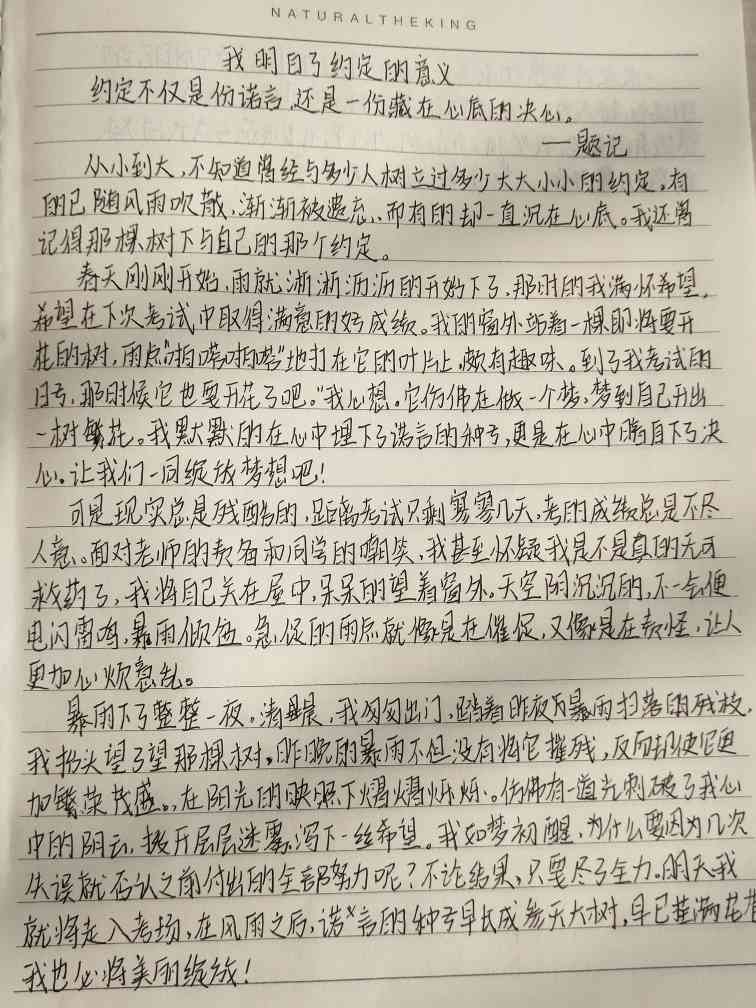 NATURALTHEKING
我明白了约定的意义
约定不仅是份诺言,还是一份藏在心底的决心。
——题记
从小到大,不知道曾经与多少人树立过多少大大小小的约定,有
的已随风雨吹散,渐渐被遗忘,而有的却一直沉在心底。我还曾
记得那棵树下与自己的那个约定。
春天刚刚开始,雨就淅淅沥沥的开始下了,那时的我满怀希望,
希望在下次考试中取得满意的好成绩。我的窗外站着一棵即将要开
花的树,雨点"啪嗒啪嗒"地打在它的叶片上,颇有趣味。到了我考试的
日子,那时候它也要开花了吧。"我心想。它仿佛在做一个梦,梦到自己开出
一树繁花。我默默的在心中埋下了诺言的种子,更是在心中暗自下了决
心。让我们一同绽放梦想吧!
可是现实总是残酷的,距离考试只剩寥寥几天,考的成绩总是不尽
人意。面对老师的责备和同学的嘲笑,我甚至怀疑我是不是真的无可
救药了,我将自己关在屋中,呆呆的望着窗外。天空阴沉沉的,不一会便
电闪雷鸣,暴雨倾泻。急促的雨点就像是在催促,又像是在责怪,让人
更加心烦意乱。
暴雨下了整整一夜。清晨,我匆匆出门,踏着昨夜为暴雨扫落的残枝,
我抬头望了望那棵树。昨晚的暴雨不但没有将它摧残,反而却使它更
加繁荣茂盛。,在阳光的映照下熠熠烁烁。仿佛有一道光刺破了我心
中的阴云,拨开层层迷雾,泻下一丝希望。我如梦初醒,为什么要因为几次
失误就否认之前付出的全部努力呢?不论结果,只要尽了全力。明天我
就将走入考场,在风雨之后,诺言的种子早长成参天大树,早已挂满花苞
我也必将美丽绽放!